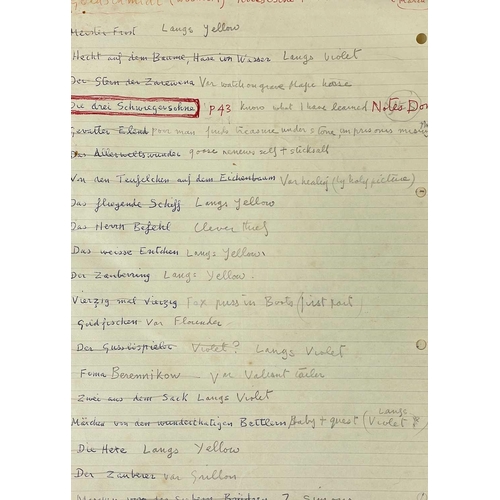 Meister Frost Langs Yellow
Hecht auf dem Baume, Hase im Wasser Langs Violet
Der Stern der Zarewena Var watch on grave
Die drei Schwiegersöhne P43 Know what I have learned Notes Don
Gevatter Elend poor man finds treasure under stone
Das Allerweltswunder goose renews self +
Von den Teufelchen auf dem Eichenbaum Var healing (by holy picture)
Das fliegende Schiff Langs Yellow
Das Herrn Befehl Clever thief
Das weisse Entchen Langs Yellow.
Der Zauberring Langs Yellow.
Vierzig mal Vierzig Fox puss in Boots (first part)
Goldfischen Var Flounder
Der Violet? Langs Violet
Foma Berennikow – Var Valiant tailor
Zwei aus dem Sack Langs Violet
Märchen von den wunderthatigen Bettlern Baby + guest (Langs Violet ?
Die Hexe Langs Yellow
Der Zauberer Var Grillon